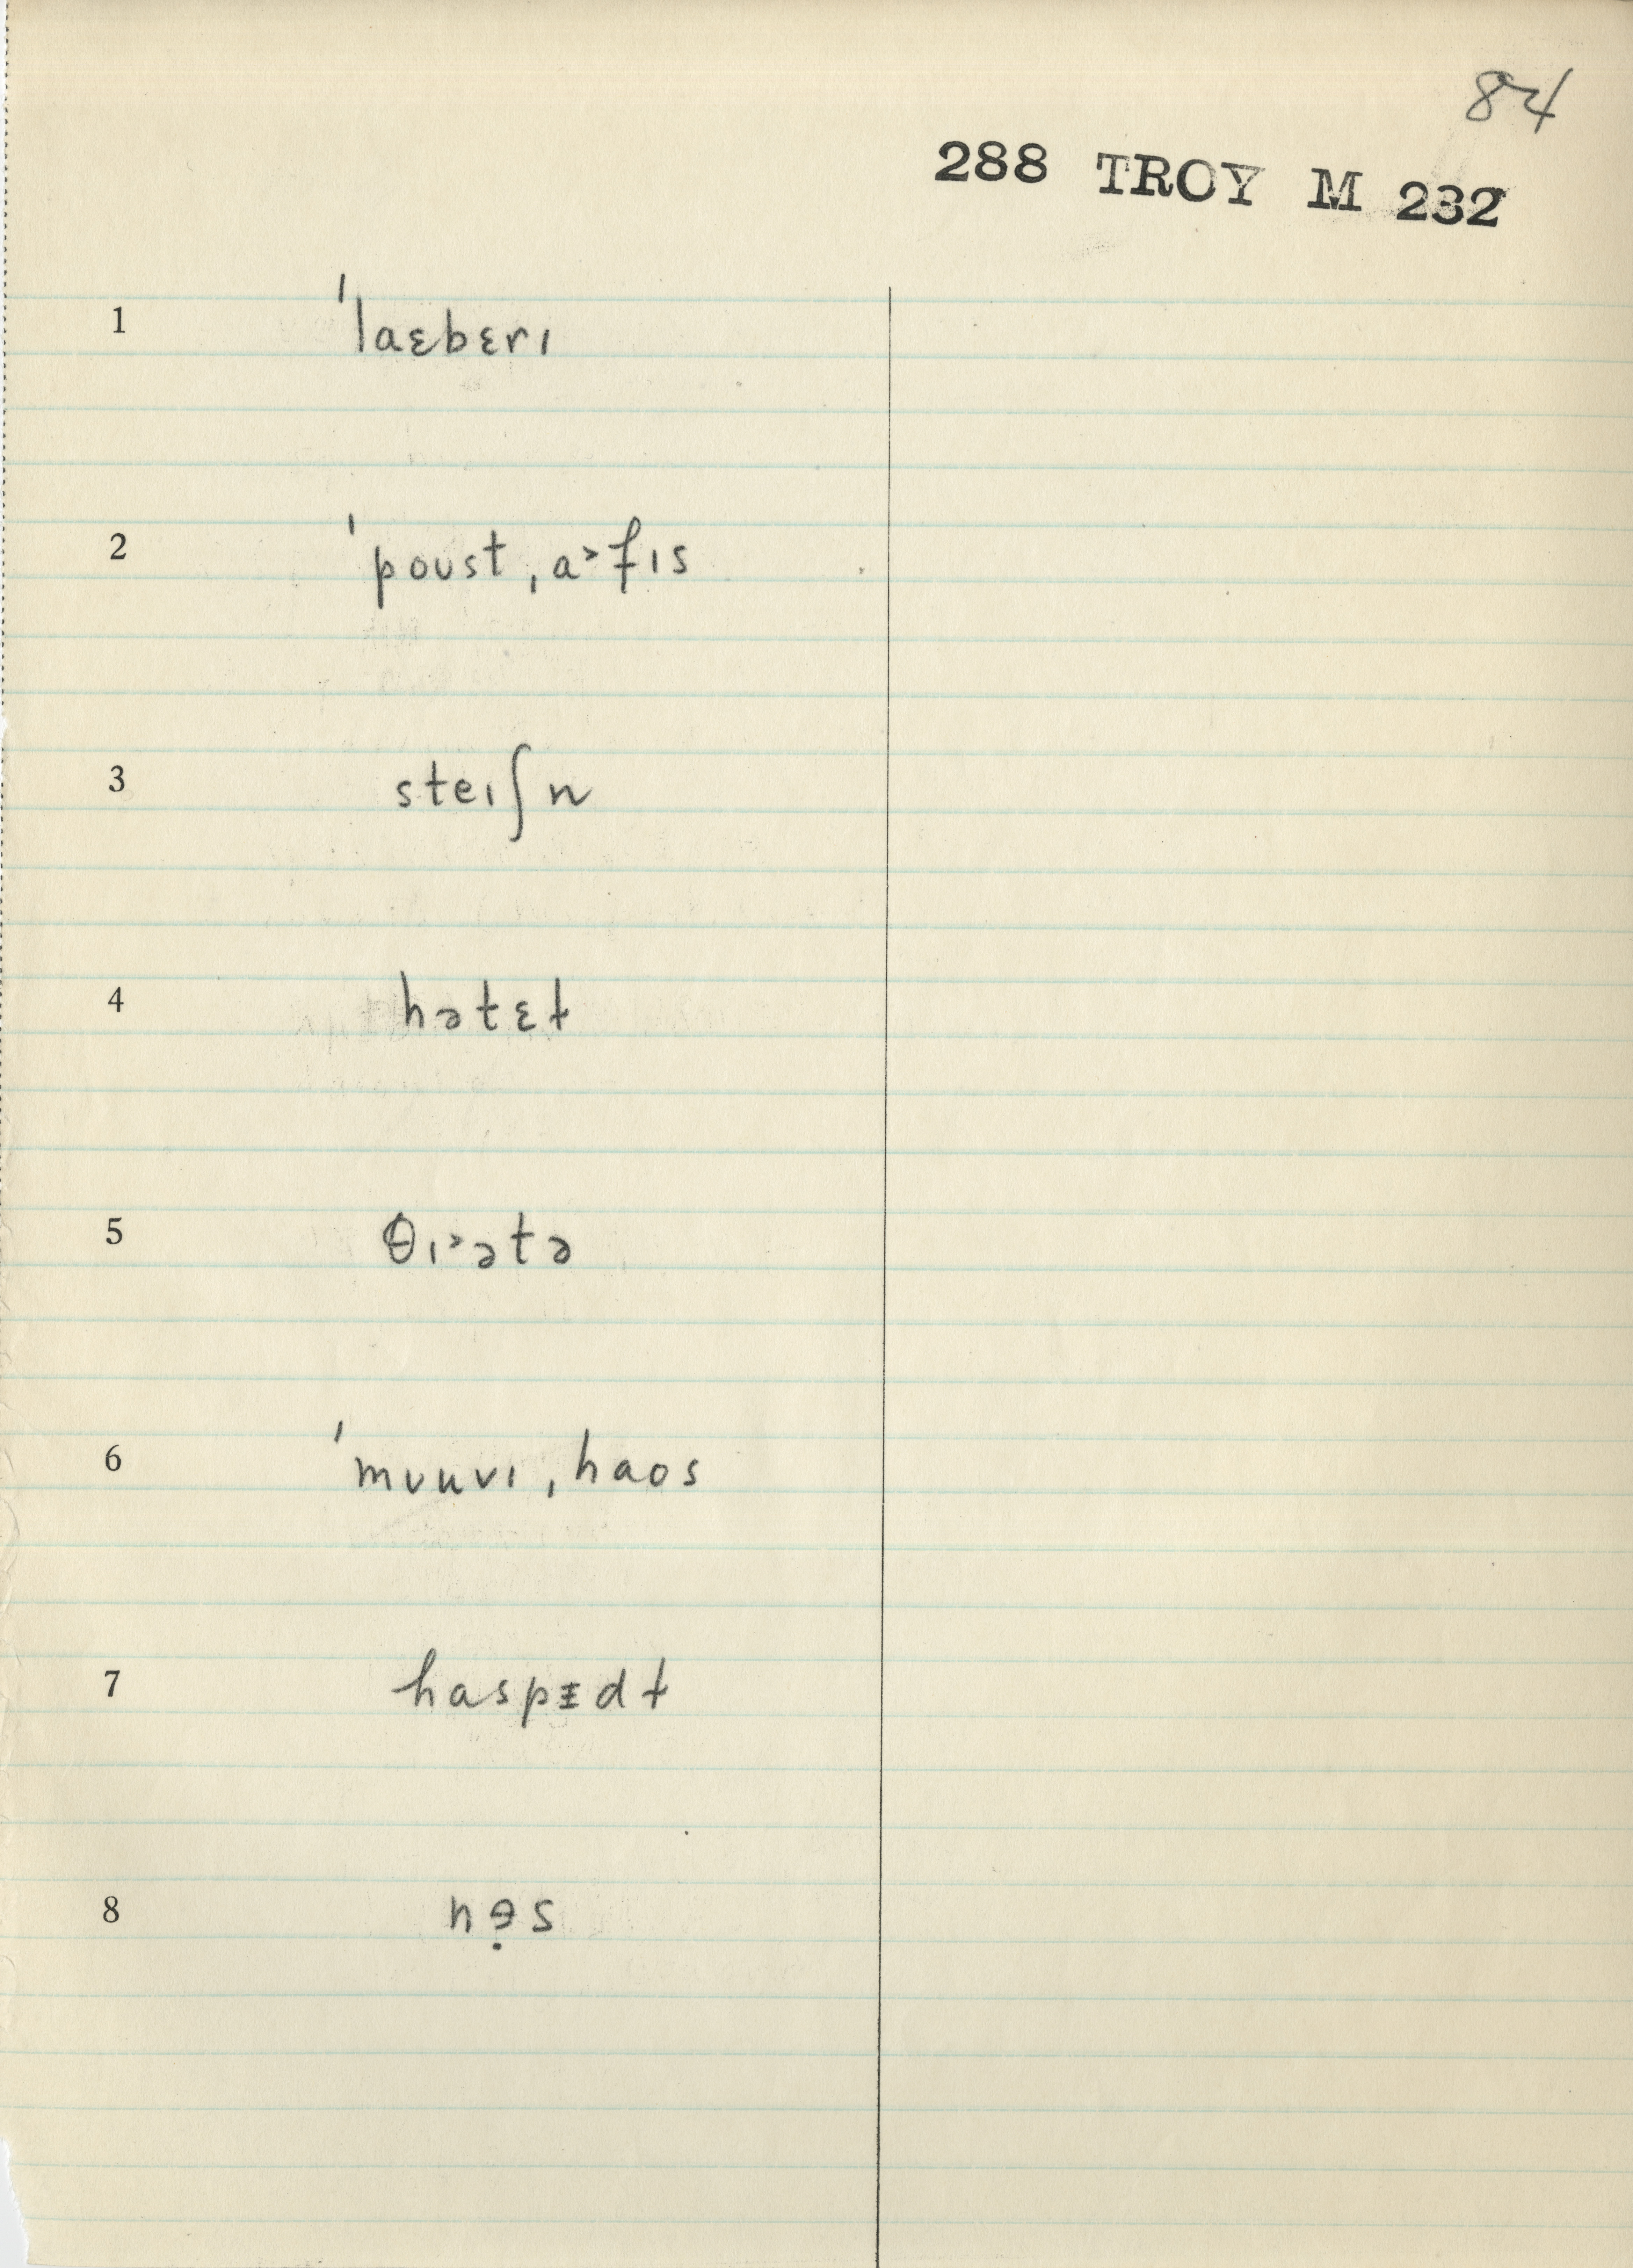 84
288 TROY M 232
1 ˈlaɛbɛrɪ
2 ˈpoust ˌa˃fɪs
3 steɪʃn
4 hətɛɫ
5 θɪ˃ətə
6 ˈmʋuvɪ ˌhaos
7 haspᵻdɫ
8 nɘ̣s